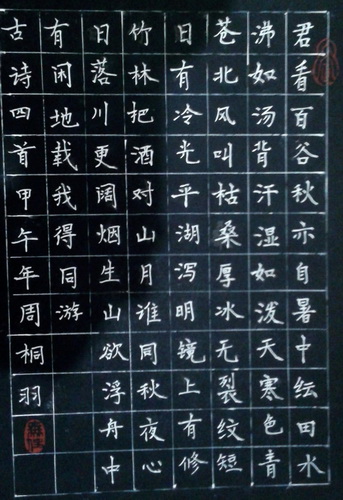 君看百谷秋亦自暑中纭田水
沸如汤背汗湿如泼天寒色青
苍北风叫枯桑厚冰无裂纹短
日有冷光平湖泻明镜上有修
竹林把酒对山月谁同秋夜心
日落川更阔烟生山欲浮舟中
有闲地载我得同游
古诗四首甲午年周桐羽